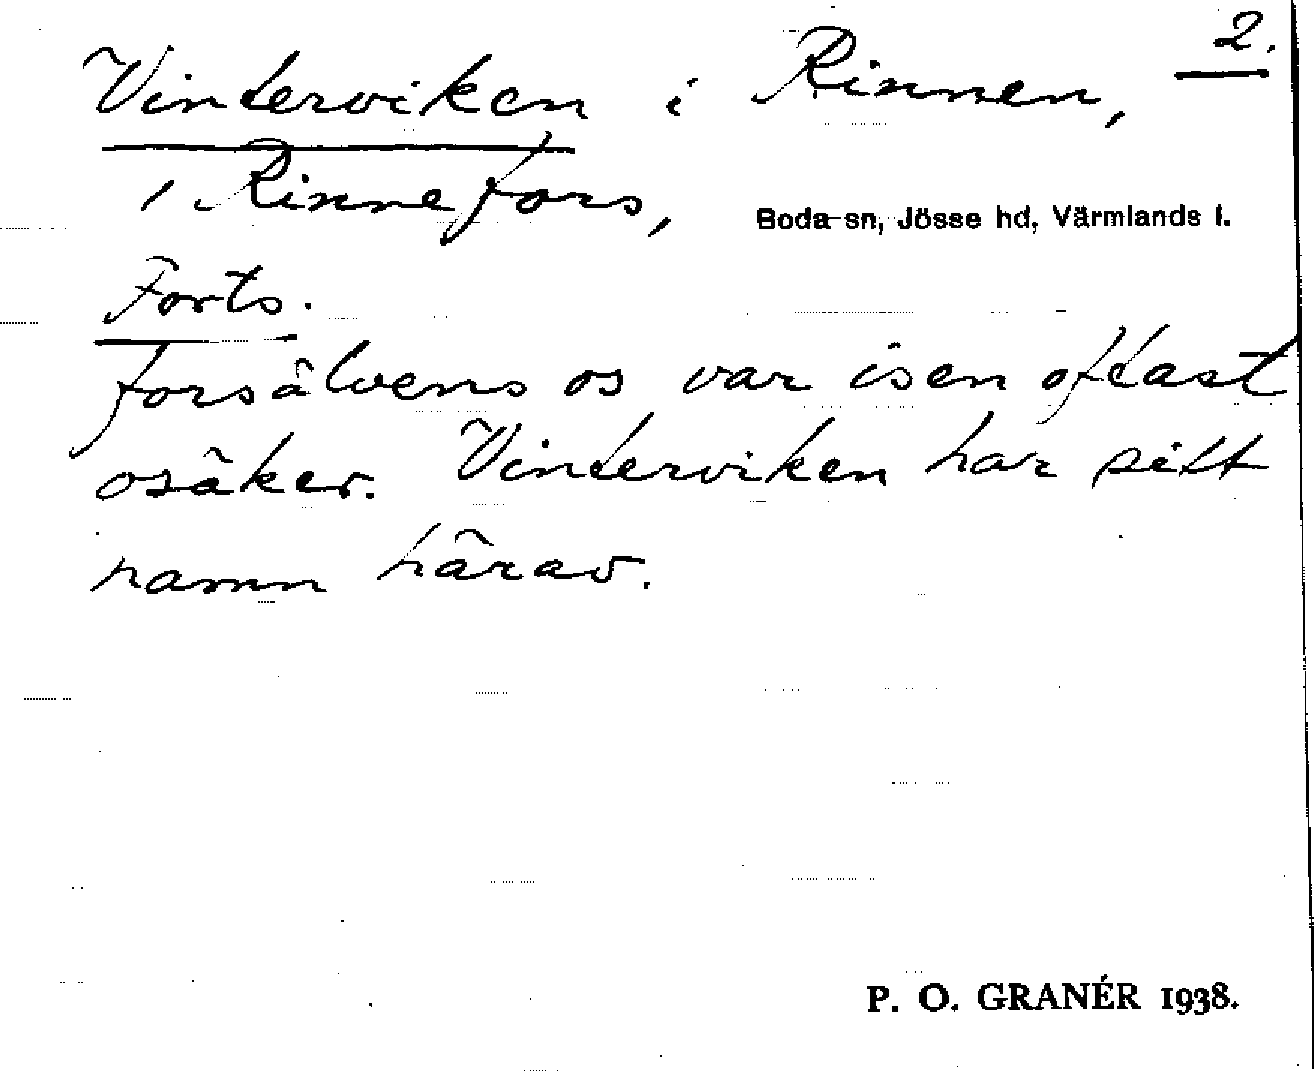 Vinterviken i Rinnen, 2.
i Rinnefors,
Boda sn, Jösse hd, Värmlands l.
Forts.
forsälvens os var isen oftast
osäker. Vinterviken har sitt
namn härav.
P. O. GRANÉR 1938.